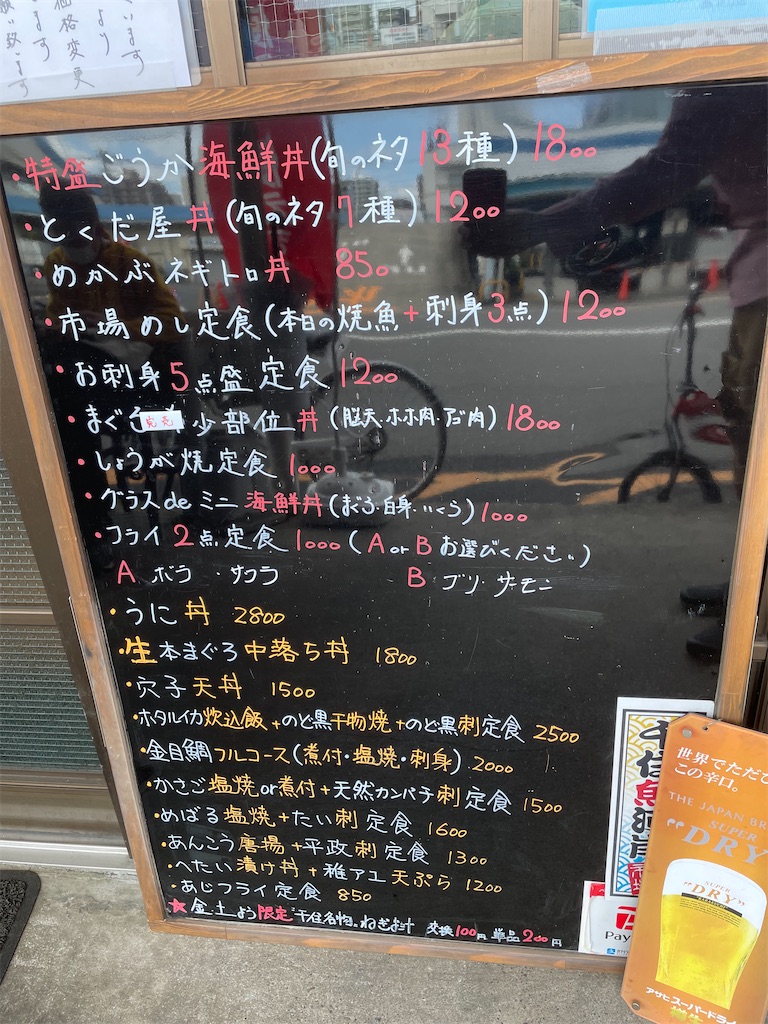 います
より
価格変更
ます
致します
・特盛ごうか海鮮丼(旬のネタ13種)1800
・とくだ屋丼(旬のネタ7種)1200
・めかぶネギトロ丼 850
・市場めし定食(本日の焼魚+刺身3点)1200
・お刺身5点盛定食1200
・まぐろ 少部位丼(脳天・ホホ肉・アゴ肉)1800
売売
・しょうが焼定食 1000
・グラスdeミニ海鮮丼(まぐろ・白身・いくら)1000
・フライ2点定食1000(AorBお選びください)
A ボラ・サワラ B ブリ サーモン
・うに丼 2800
・生本まぐろ中落ち丼 1800
・穴子天丼 1500
・ホタルイカ炊込飯+のど黒干物焼+のど黒刺定食 2500
・金目鯛フルコース(煮付・塩焼・刺身)2000
・かさご塩焼or煮付+天然カンパチ刺定食1500
・めばる塩焼+たい刺定食 1600
・あんこう唐揚+平政刺定食 1300
・へたい漬け丼+稚アユ天ぷら 1200
・あじフライ定食 850
★金、土よう限定 千住名物、ねぎま汁 交換100円 単品200円
千住魚河岸
Pay
世界でただひ
この辛口。
THE JAPAN BR
SUPER
"DRY"
SUPER
"DRY"
アサヒスーパードライ